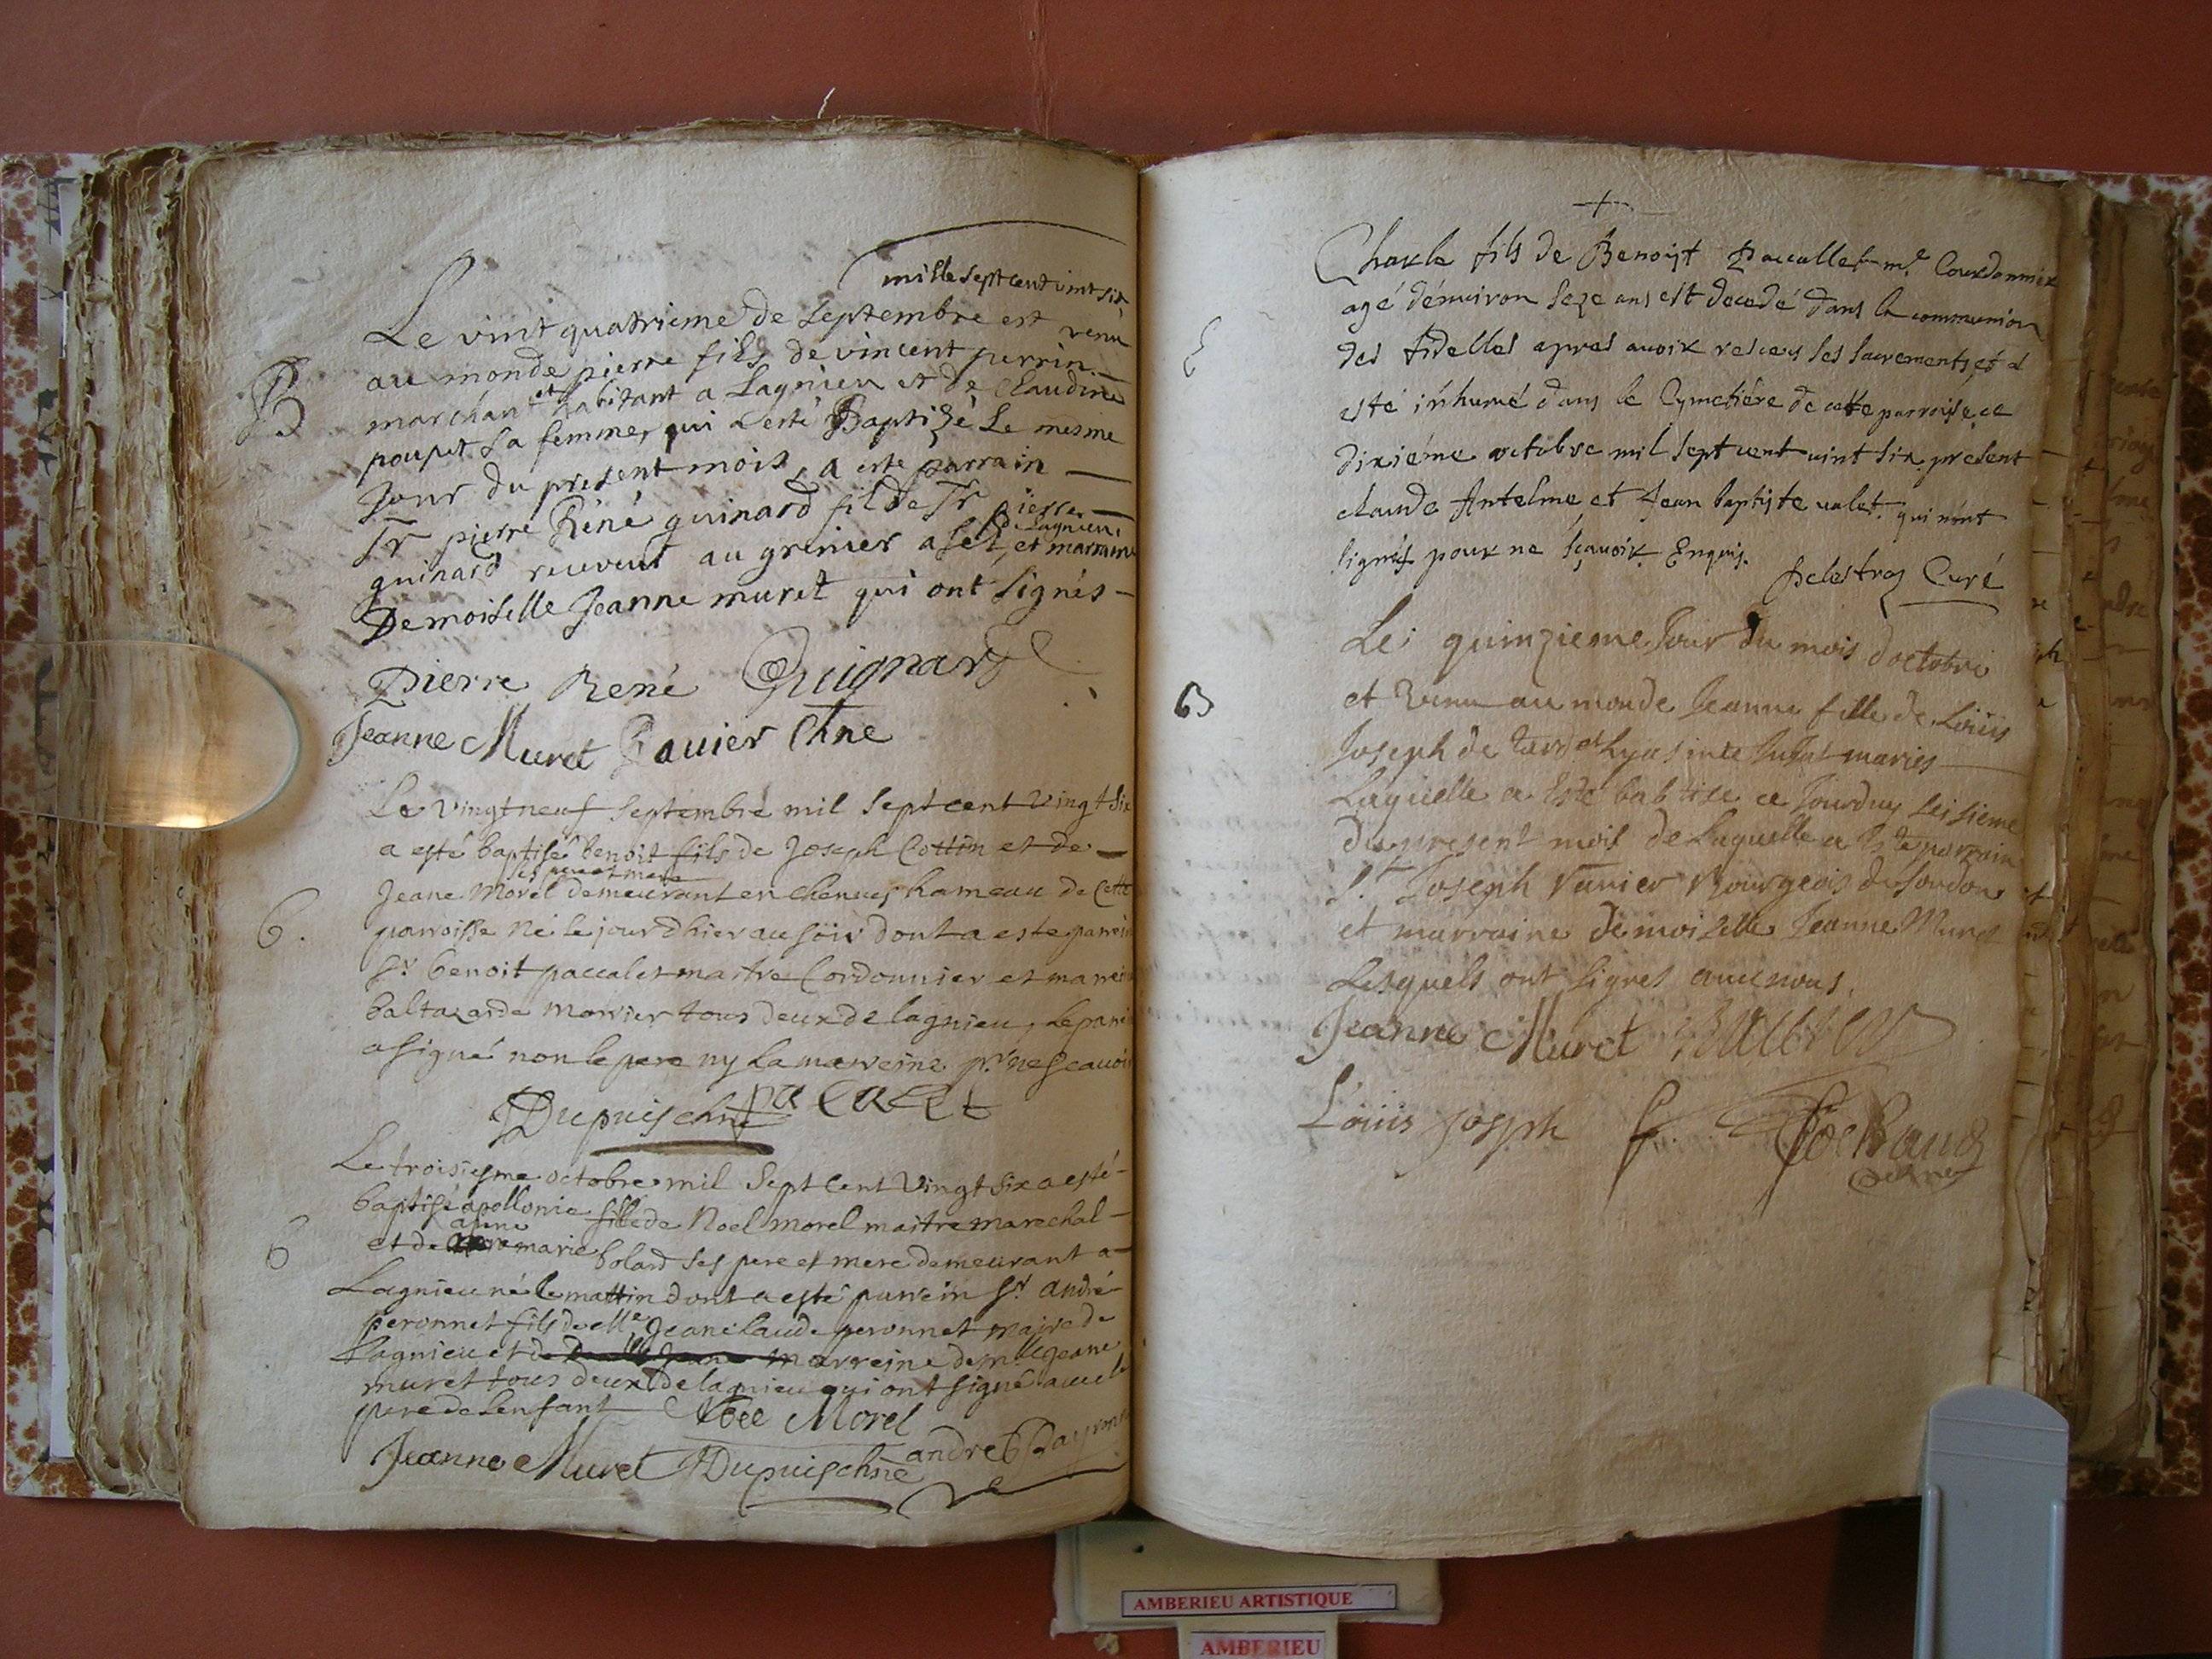 mille sept cent vint six
Le vint quatrieme de septembre est venu
au monde pierre fils de vincent perrin
B
marchant et habitant a Lagnieu et de Claudine
poupet sa femme, qui a esté Baptizé Le mesme
Jour du present mois, a esté parrain
Sr pierre Réné guinard fil de Sr pierre
guinard receveur au grenier a sel de Lagnieu, et marraine
Demoiselle Jeanne muret qui ont signés
Pierre René Guignard
Jeanne Muret Ravier Chne
Le vingtneuf septembre mil sept cent vingt six
a esté baptisé benoit fils de Joseph Cottin et de
ses pere et mere
Jeane Morel demeurant en chenues hameau de Cette
6.
parroisse Né le jour dhier au soir dont a este parrein
Sr benoit paccalet maitre Cordonnier et marreine
baltazarde monier tous deux de lagnieu, le parrein
a signé non le pere ny la marreine pr ne scauoir
Dupuis chne pacalet
Le troisiesme octobre mil sept Cent vingt six a esté
baptisé apollonie fille de Noel morel maitre marechal
anne
et de marie bolard ses pere et mere demeurant a
6
Lagnieu né le mattin dont a esté parrein Sr andré
peronnet fils de Mre Jean claude peronnet maire de
Lagnieu et de marreine demlle Jeane
muret tous deux de lagnieu qui ont signé auec le
pere de lenfant Noel Morel
Jeanne Muret Dupuis chne andre Payronnet
+
Charle fils de Benoist Paccallet me Courdonnier
agé d'énuiron seze ans est decedé dans la communion
E
des fidelles apres auoir resceus ses sacrements et a
esté inhumé dans le Cymetiére de cette parroisse, ce
dixiéme octobre mil sept cent vint six, present
claude Antelme et Jean baptiste valet qui n'ont
signés pour ne sçauoir Enquis.
Delestraz Curé
Le quinzieme Jour du mois doctobre
B
et venu au monde Jeanne fille de Loüis
Joseph de et hyasinte maries
Laquelle a esté babtise ce Jourduy seisieme
du present mois de Laquelle a este parrain
Sr Joseph Ravier Bourgeois de
et marraine demoiselle Jeanne Muret
Lesquels ont signes auec nous.
Jeanne Muret Ravier
Loüis Joseph
AMBERIEU ARTISTIQUE
AMBERIEU